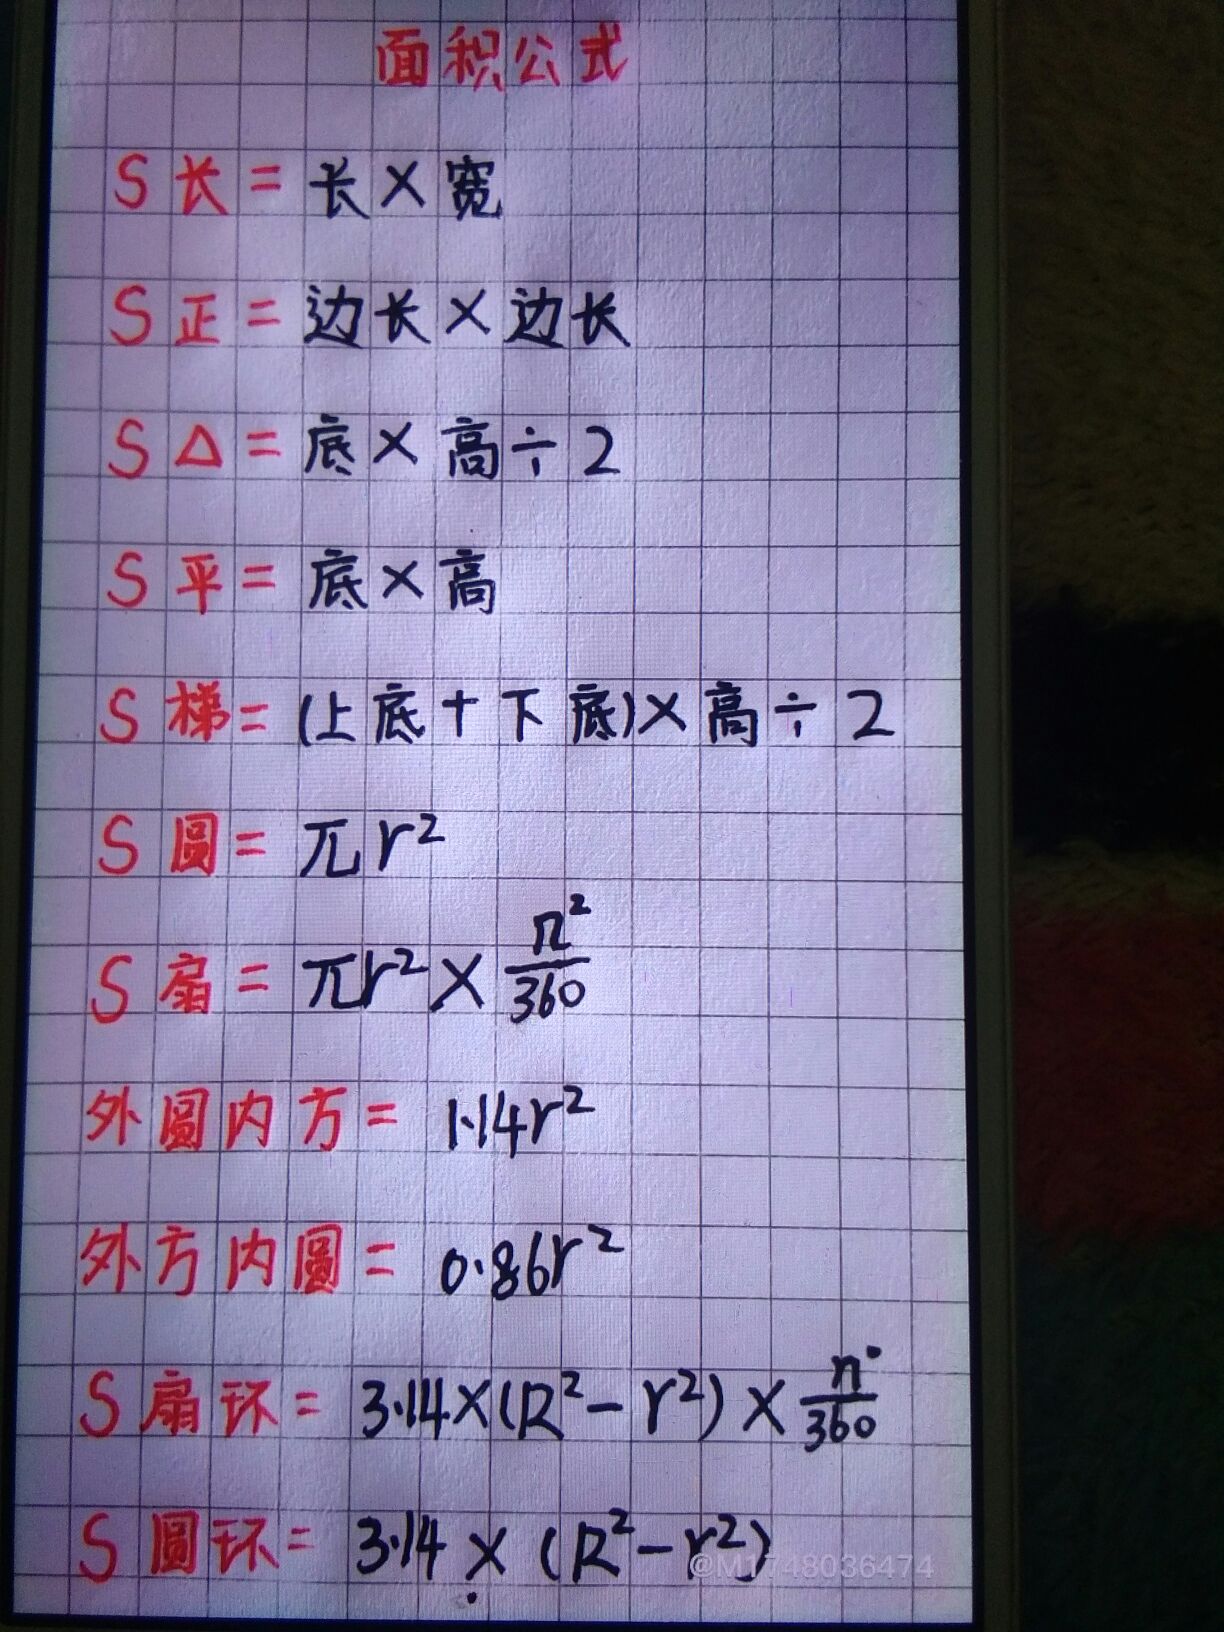 面积公式
S长=长×宽
S正=边长×边长
S△=底×高÷2
S平=底×高
S梯=(上底+下底)×高÷2
S圆=πr²
S扇=πr²×n²/360
外圆内方=1.14r²
外方内圆=0.86r²
S扇环=3.14×(R²-r²)×n°/360
S圆环=3.14×(R²-r²)
@M1748036474